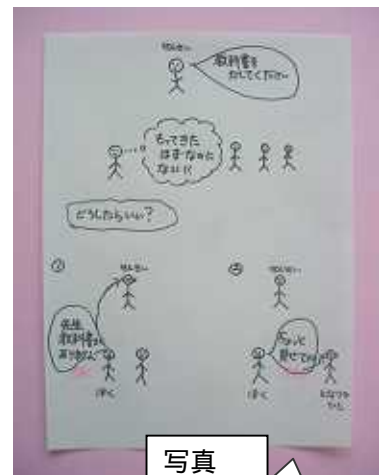 せんせい
教科書を
だしてください
もってきた
はずなのに
ない!!
どうしたらいい?
①
せんせい
先生
教科書が
ありません
ぼく
②
せんせい
ちょっと
見せて
ぼく
となりの
ひと
写真